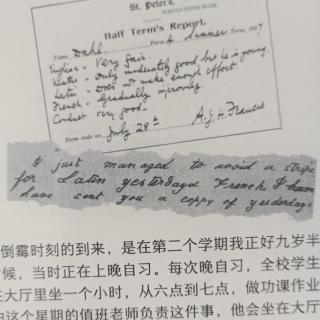 St. Peter's,
WESTON-SUPER-MARE
Half Term's Report.
Name Dahl Form 4 Summer Term, 1927
English - Very fair.
Maths - Only moderately good but he is young.
Latin - Does not make enough effort
French - Gradually improving.
Conduct very good.
Term ends on July 28th A. J. H. Francis
I just managed to avoid a stripe
for Latin yesterdayd French, I have
have sent you a coppy of yesterdays
倒霉时刻的到来,是在第二个学期我正好九岁半
候,当时正在上晚自习。每次晚自习,全校学生
在大厅里坐一个小时,从六点到七点,做功课作业
这个星期的值班老师负责这件事,他会坐在大厅